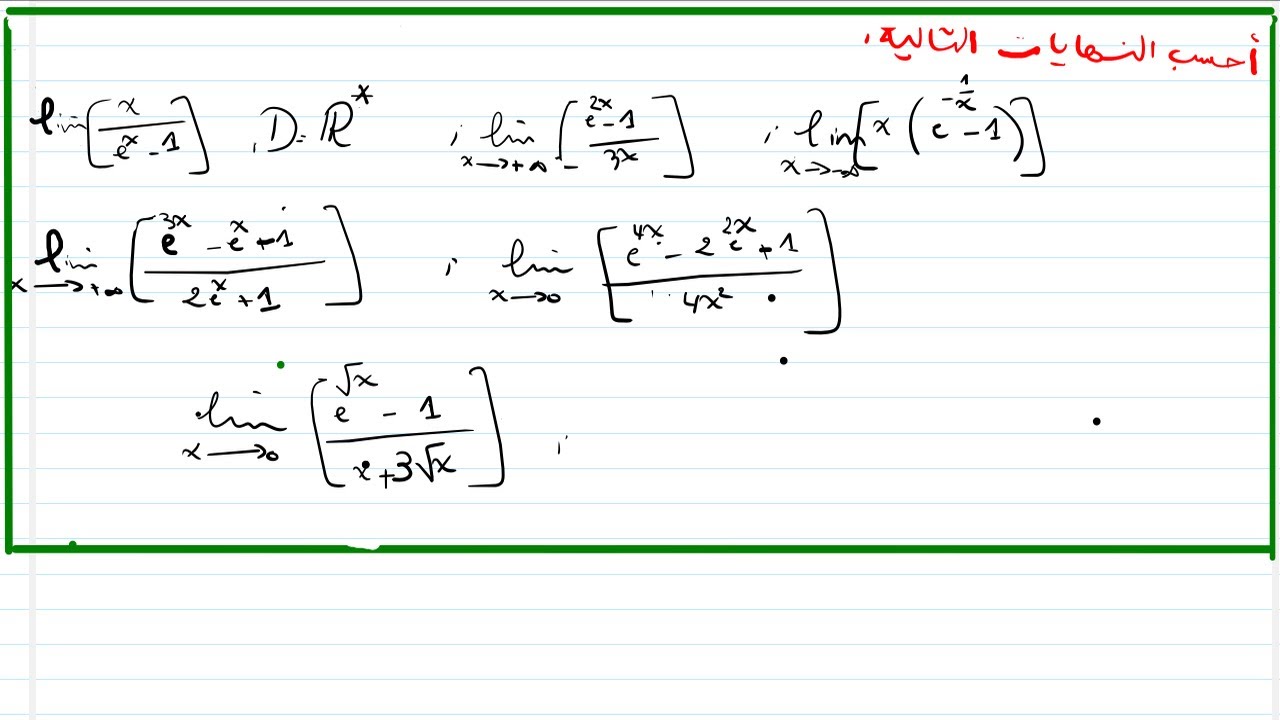 أحسب النهايات التالية:
lim [x / (e^x - 1)] , D = ℝ* ; lim x→+∞ [(e^{2x} - 1) / 3x] ; lim x→-∞ [x (e^{-1/x} - 1)]
lim x→+∞ [(e^{3x} - e^x + 1) / (2e^x + 1)] ; lim x→0 [(e^{4x} - 2e^{2x} + 1) / 4x²]
lim x→0 [(e^{√x} - 1) / (x + 3√x)] ;